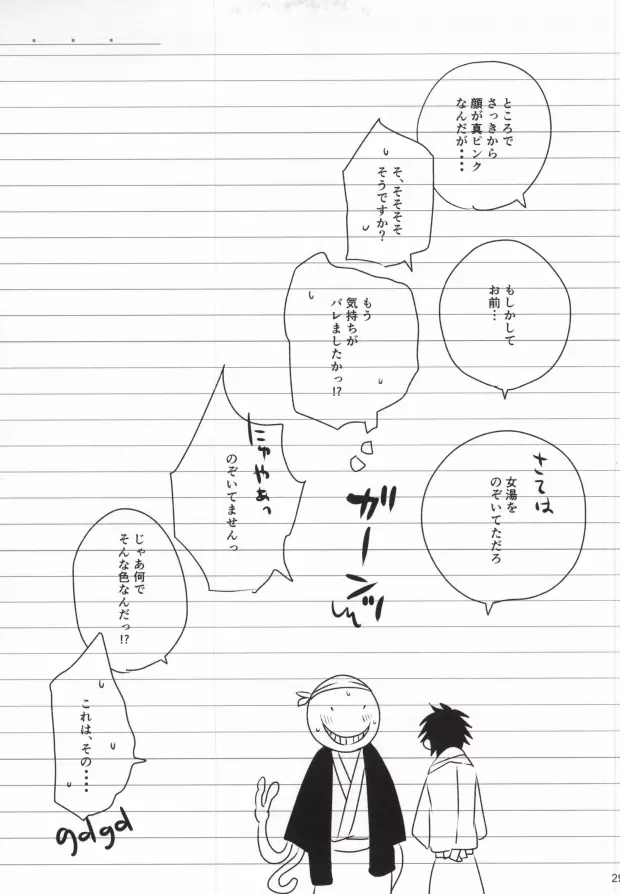 ところで
さっきから
顔が真ピンク
なんだが・・・・
そ、そそそそ
そうですか？
もしかして
お前…
もう
気持ちが
バレましたかっ!?
さては
女湯を
のぞいてただろ
ガーンッ
にゅやあっ
のぞいてませんっ
じゃあ何で
そんな色なんだっ!?
これは、その・・・・・
gdgd
29